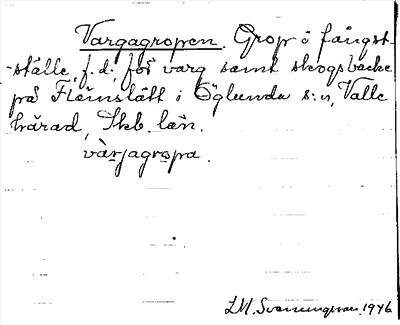 Vargagropen. Grop i fångst-
-ställe, f.d., för varg samt skogsbacke
på Flämslätt i Öglunda s:n, Valle
härad, Skb. län.
värjagropa.
L.M. Svanungsson 1946